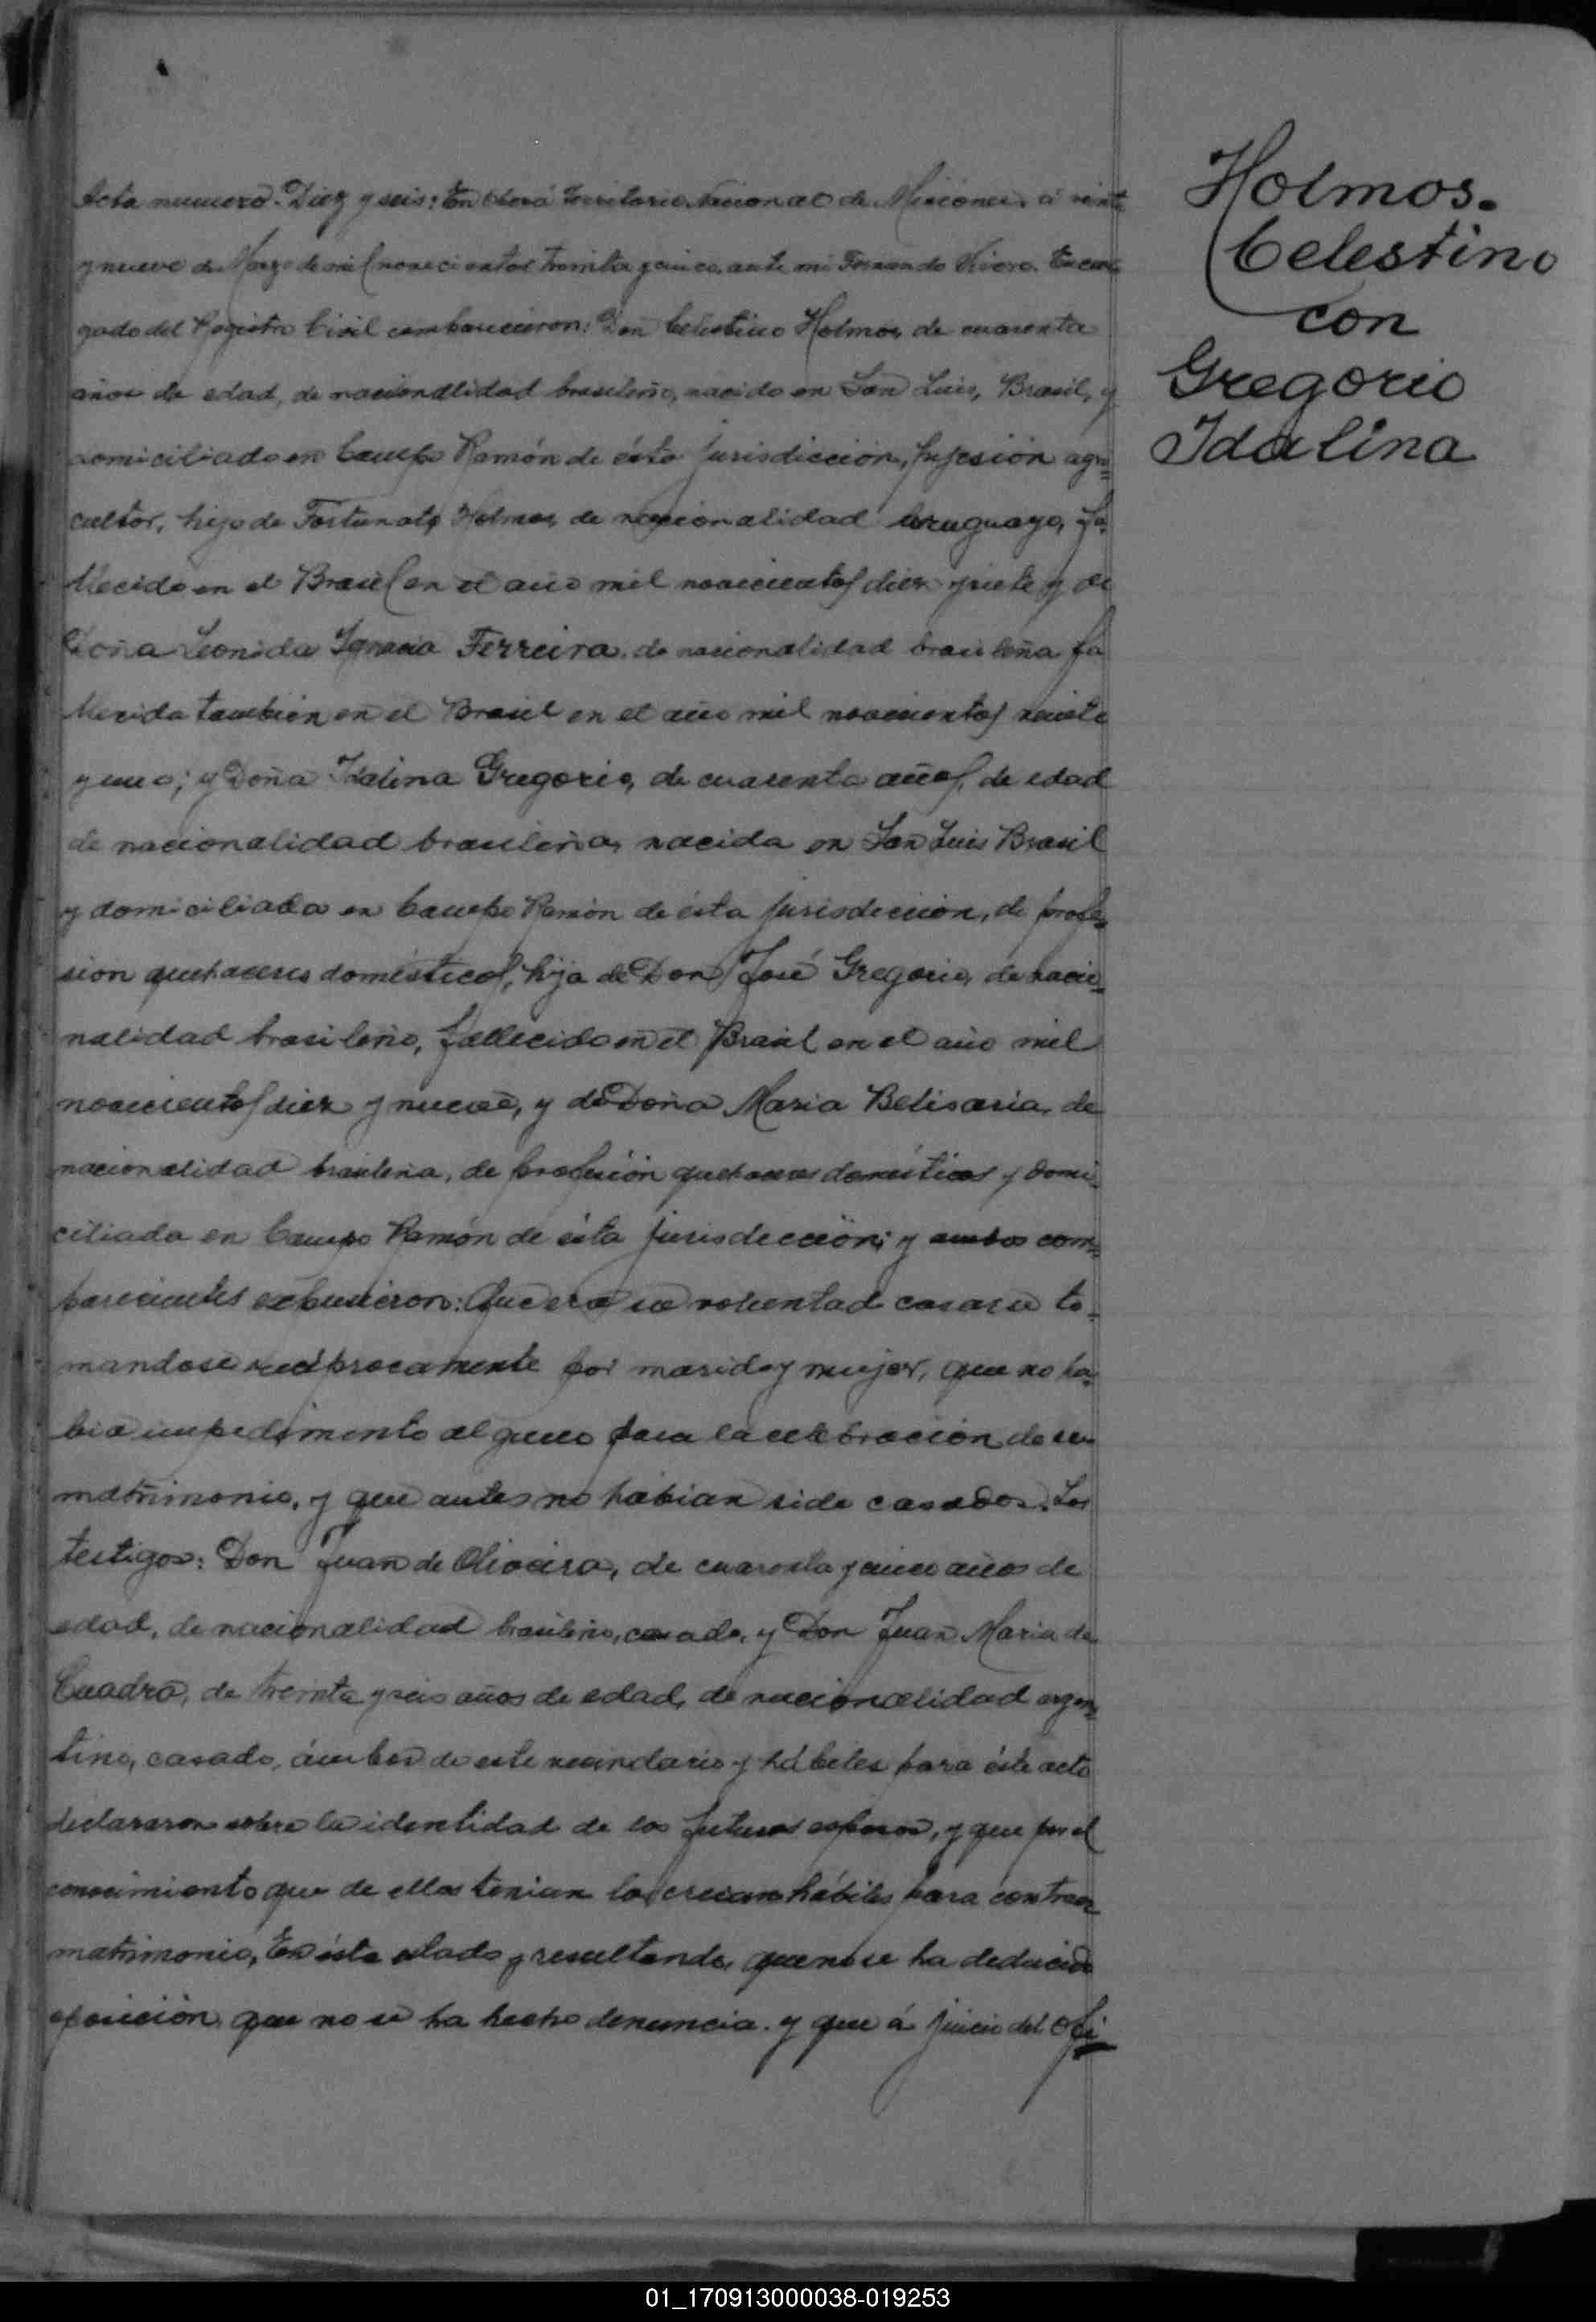 Acta numero. Diez y seis: En Oberá Territorio Nacional de Misiones, á veinte
y nueve de Marzo de mil novecientos treinta y cinco, ante mi Fernando Encar
gado del Registro Civil comparecieron: Don Celestino Holmos, de cuarenta
años de edad, de nacionalidad brasileño, nacido en San Luis, Brasil, y
domiciliado en Campo Ramón de ésta jurisdicción, profesión agri=
cultor, hijo de Fortunato Holmos, de nacionalidad Uruguayo, fa=
llecido en el Brasil en el año mil novecientos diez y siete y de
Doña Leonida Ignacia Ferreira, de nacionalidad brasileña fa
llecida tambien en el Brasil en el año mil novecientos veinte
y uno; y Doña Idalina Gregorio, de cuarenta años, de edad
de nacionalidad brasileña, nacida en San Luis Brasil
y domiciliada en Campo Ramón de ésta jurisdiccion, de profe=
sion quehaceres domésticos, hija de Don José Gregorio, de nacio=
nalidad brasileño, fallecido en el Brasil en el año mil
novecientos diez y nueve, y de Doña Maria Belisaria, de
nacionalidad brasileña, de profesión quehaceres domésticos y domi=
ciliada en Campo Ramón de ésta jurisdicción; y ambos com=
parecientes expusieron: Que era su voluntad casarse to=
mandose reciprocamente por marido y mujer, que no ha=
bia impedimento alguno para la celebración de su
matrimonio, y que antes no habian sido casados. Los
testigos: Don Juan de Oliveira, de cuarenta y cinco años de
edad, de nacionalidad brasileño, casado, y Don Juan Maria de
Cuadro, de treinta y seis años de edad, de nacionalidad argen=
tino, casado, ámbos de este vecindario y hábiles para éste acto
declararon sobre la identidad de los futuros esposos, y que por el
conocimiento que de ellos tenian los creian hábiles para contraer
matrimonio, En éste estado y resultando, que no se ha deducido
oposición, que no se ha hecho denuncia. y que á juicio del Ofi=
Holmos.
Celestino
con
Gregorio
Idalina
01_170913000038-019253